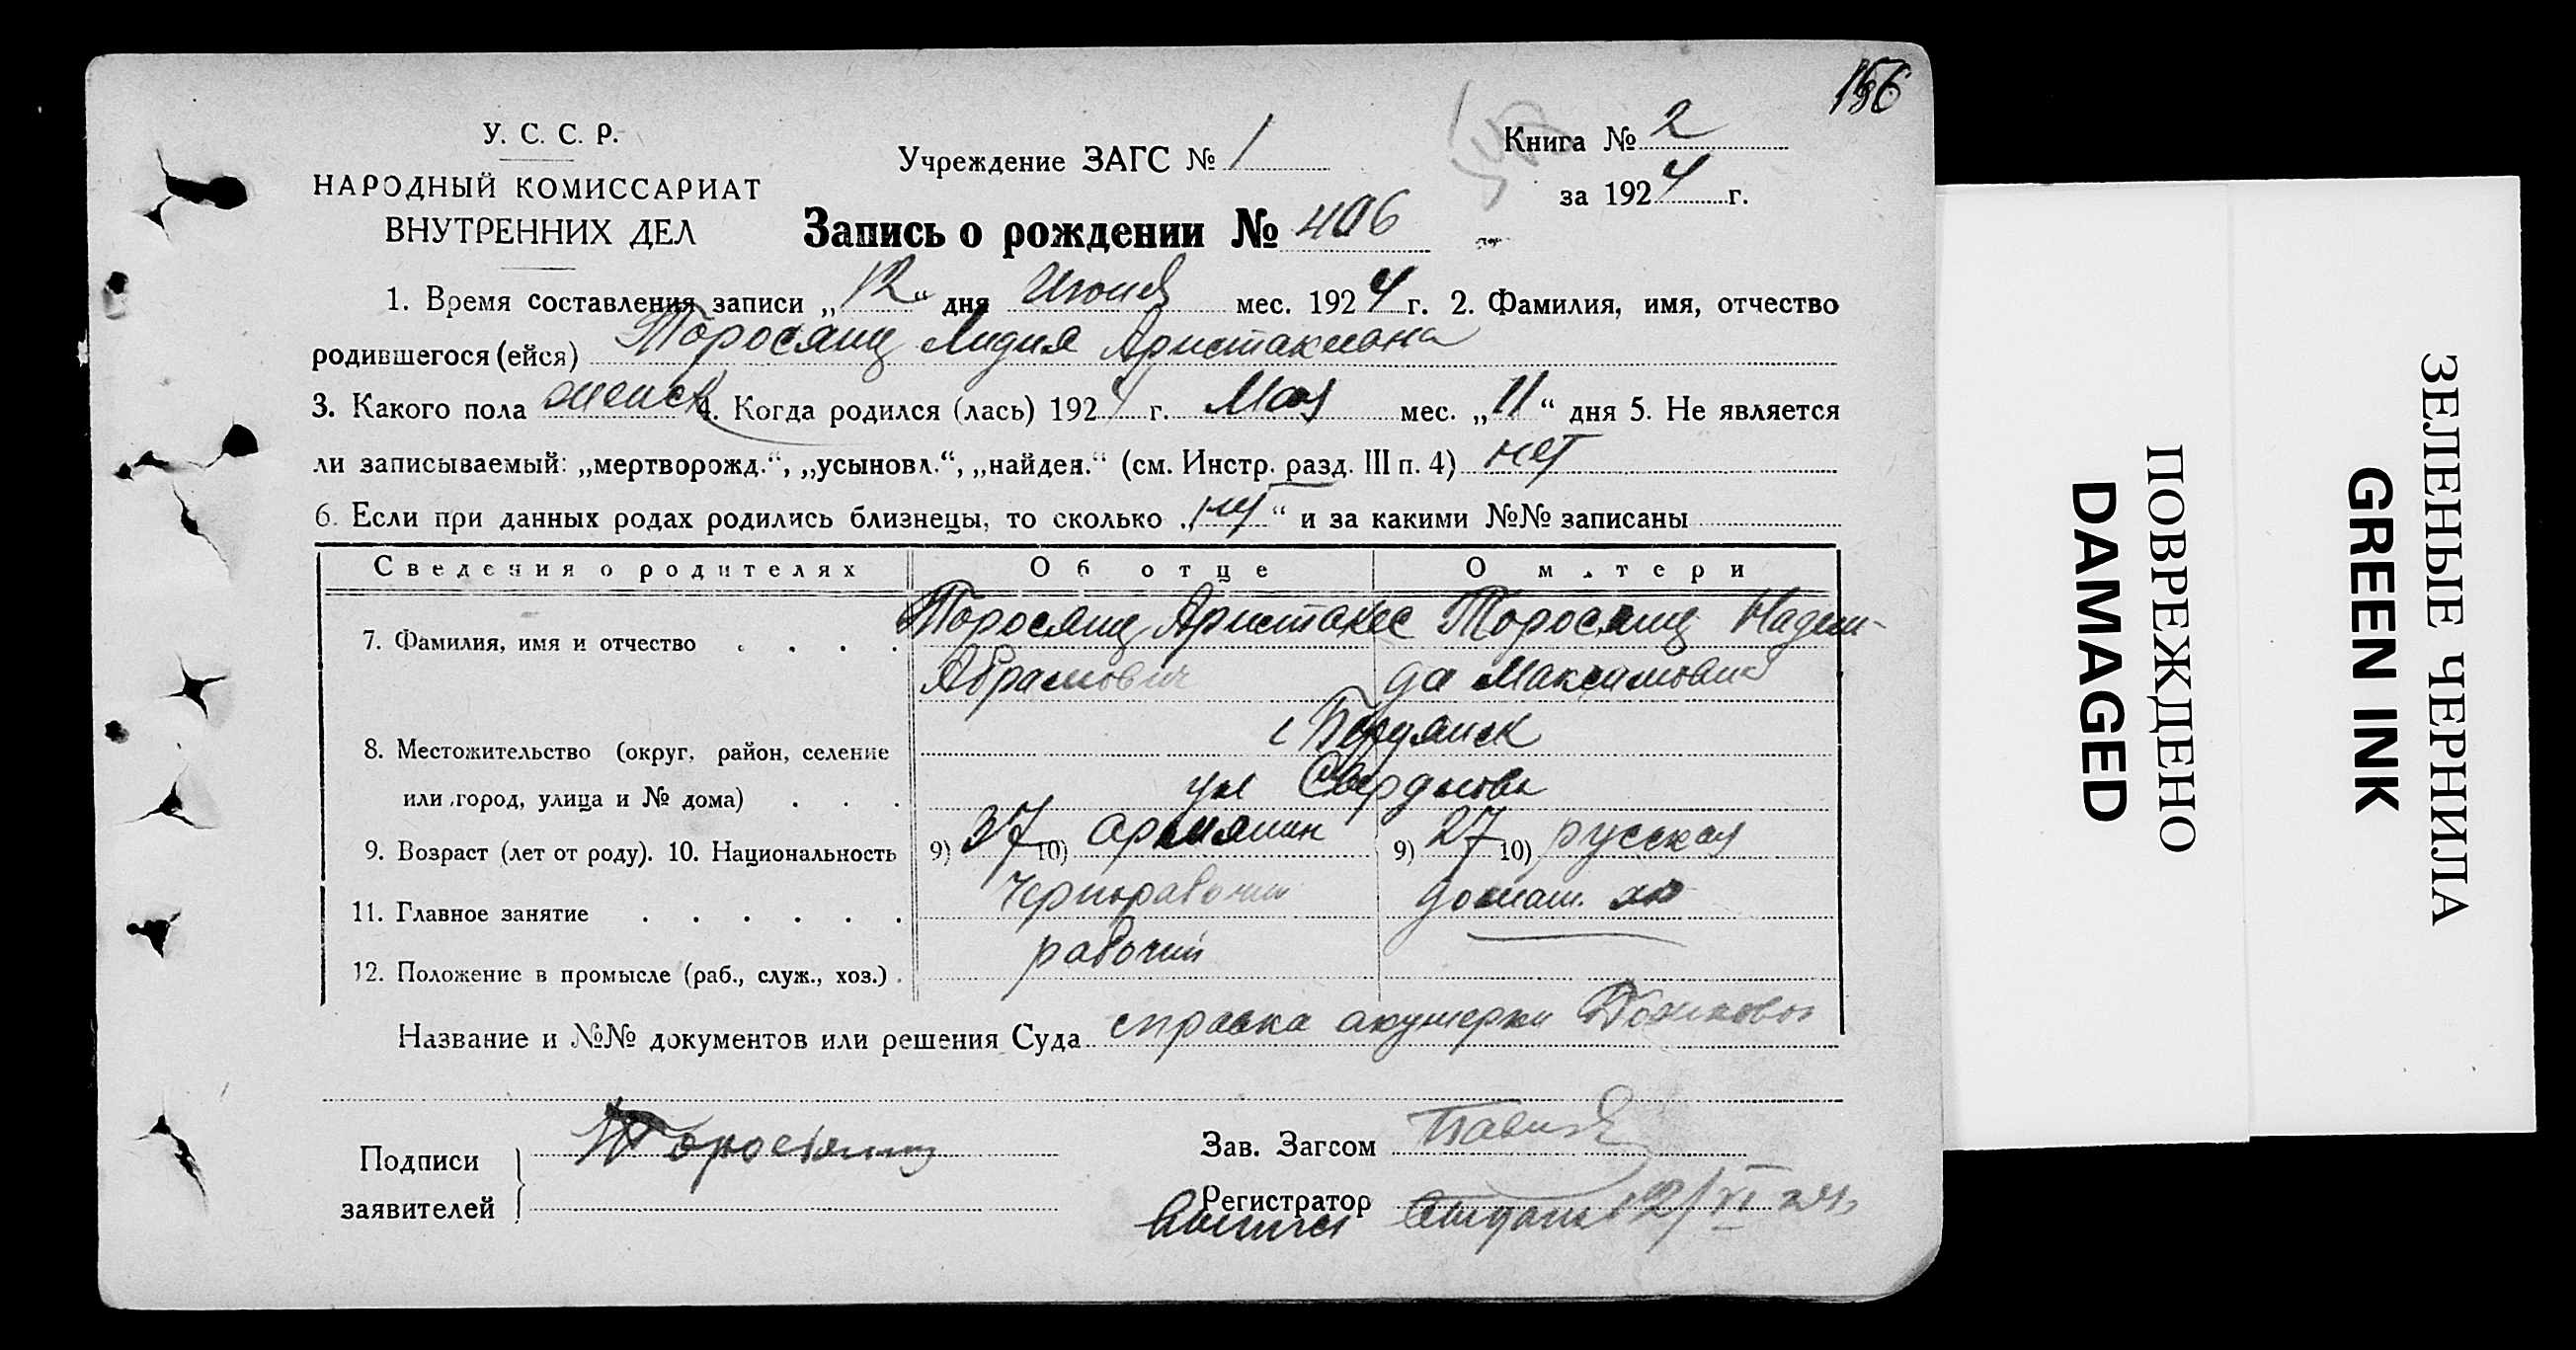 156
У. С. С. Р.
НАРОДНЫЙ КОМИССАРИАТ
ВНУТРЕННИХ ДЕЛ
Учреждение ЗАГС № 1
Книга № 2
за 1924 г.
Запись о рождении № 406
1. Время составления записи „12“ дня Июня мес. 1924 г. 2. Фамилия, имя, отчество
родившегося (ейся) Торосянц Лидия Аристакесовна
3. Какого пола женск 4. Когда родился (лась) 1924 г. Мая мес. „11“ дня 5. Не является
ли записываемый: „мертворожд.“, „усыновл.“, „найден.“ (см. Инстр. разд. III п. 4) нет
6. Если при данных родах родились близнецы, то сколько „нет“ и за какими №№ записаны
Сведения о родителях Об отце О матери
7. Фамилия, имя и отчество . . . . Торосянц Аристакес Торосянц Надеж-
Абрамович да Максимовна
8. Местожительство (округ, район, селение г Бердянск
или город, улица и № дома) . . . ул Свердлова
9. Возраст (лет от роду). 10. Национальность 9) 37 10) армянин 9) 27 10) русская
11. Главное занятие . . . . . . Чернорабочий домаш. хо
12. Положение в промысле (раб., служ., хоз.) . рабочий
Название и №№ документов или решения Суда справка акушерки
Подписи
заявителей
Торосянц
Зав. Загсом
Регистратор
12/VI 24
ПОВРЕЖДЕНО
DAMAGED
ЗЕЛЕНЫЕ ЧЕРНИЛА
GREEN INK